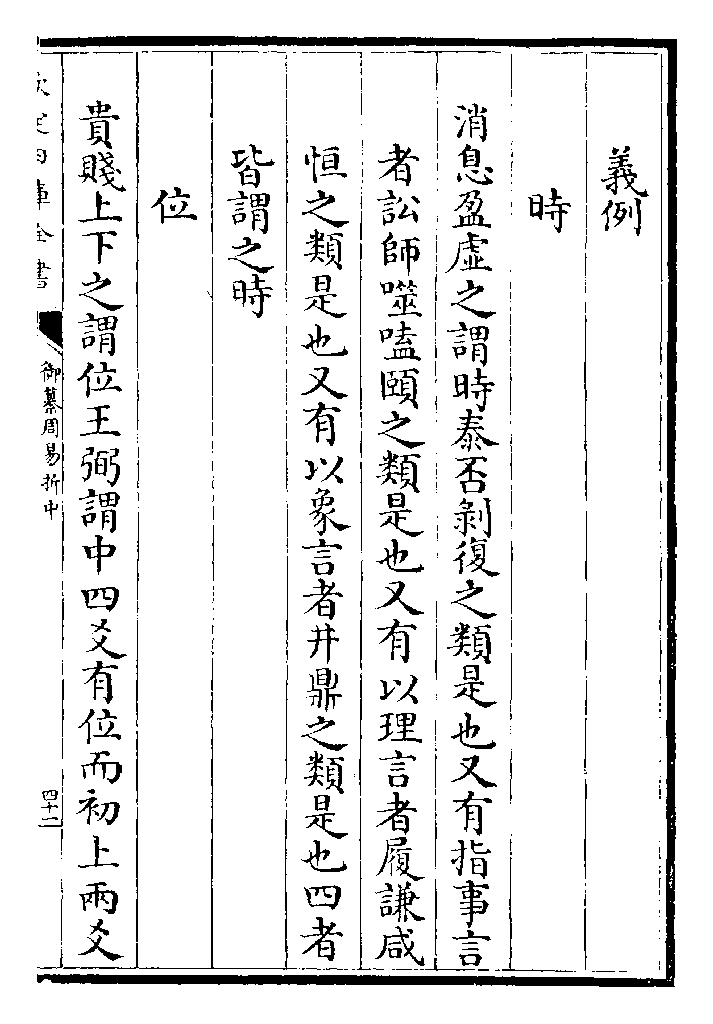 義例
時
消息盈虛之謂時泰否剝復之類是也又有指事言
者訟師噬嗑頤之類是也又有以理言者履謙咸
恒之類是也又有以象言者井鼎之類是也四者
皆謂之時
位
貴賤上下之謂位王弼謂中四爻有位而初上兩爻
欽定四庫全書
御纂周易折中
四十二